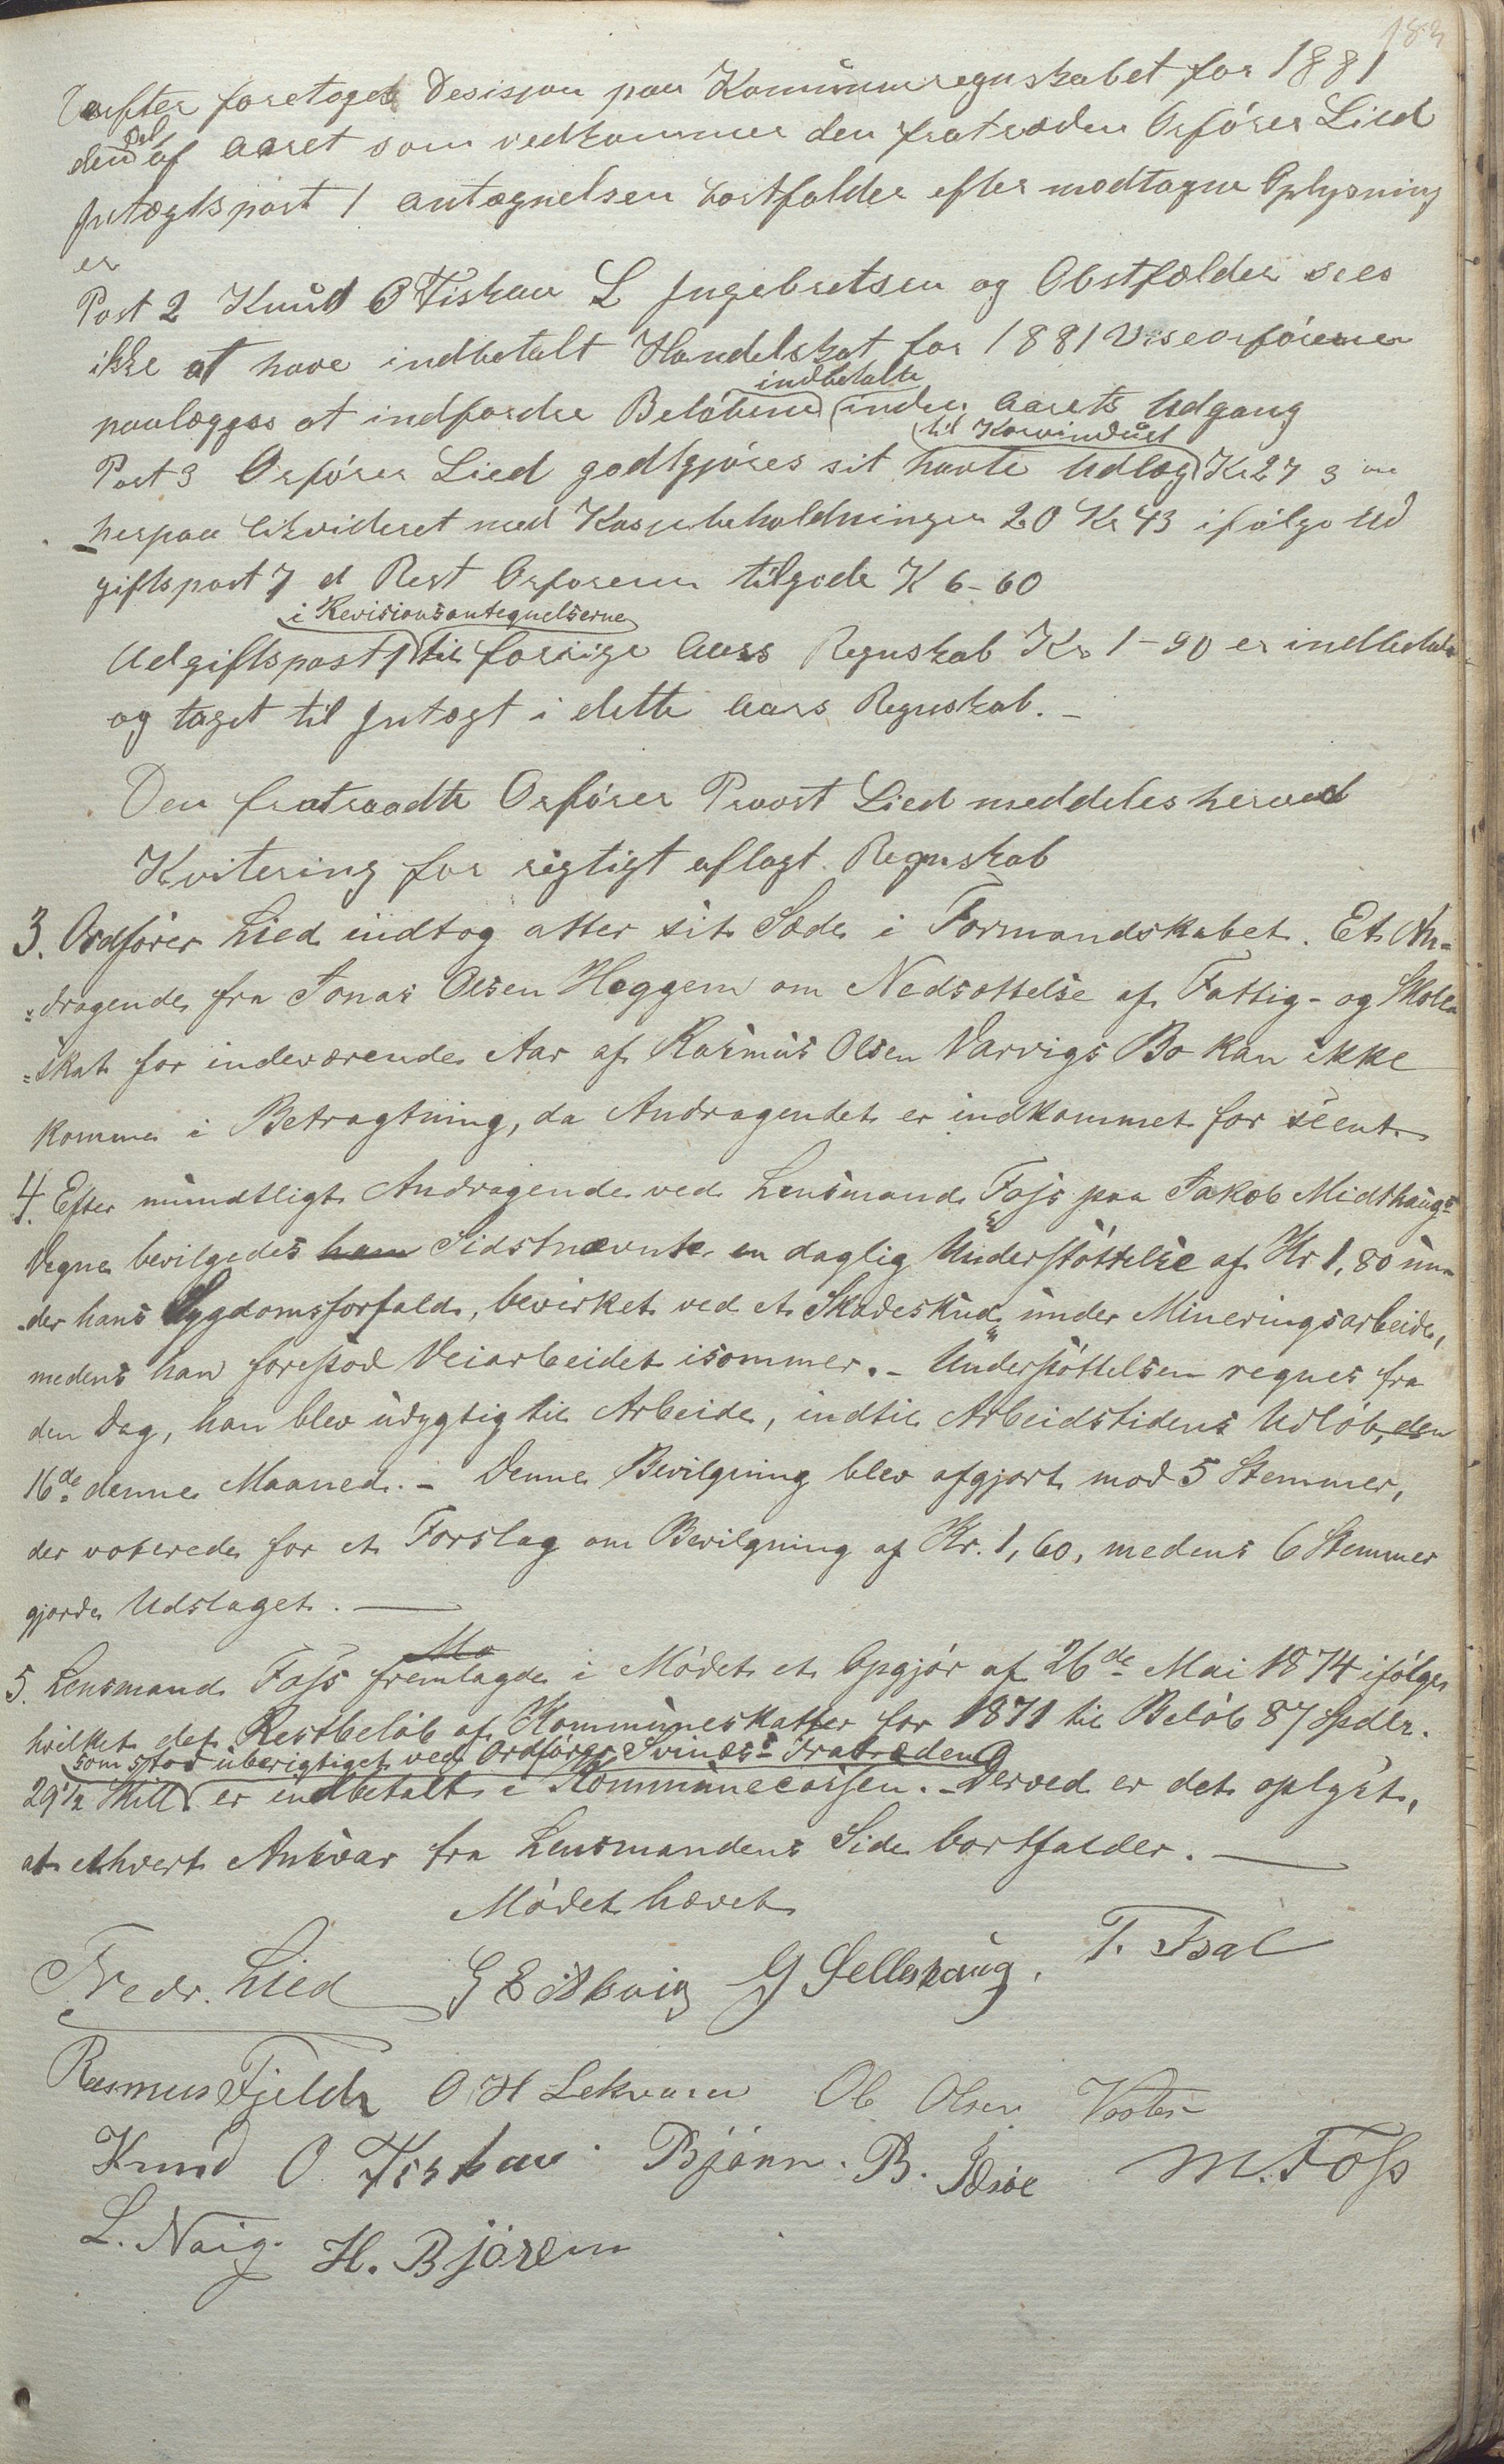 183
Derefter foretoges Desisjon paa Kommuneregnskabet for 1881
den del af aaret som vedkommer den fratrædere Orfører Lied
Jntægtspost 1 antægnelsen bortfalder efter modtagne Oplysning
er
Post 2 Knud O Fiskaa L Jngebretsen og Obstfelder sees
ikke at have indbetalt Handelskat for 1881 Viseorføreren
paalægges at indfordre Beløbene indbetalte inden aarets Udgang
Post 3 Orfører Lied godtgjøres sit havte Udlæg til Kornindust Kr 27 3
herpaa likvideret med Kassebeholdningen 20 Kr 43 ifølge Ud
giftspost 7 d Rest Orføreren tilgode K 6-60
Udgiftspost 1 i Revisionsantegnelserne til forrige Aars Regnskab Kr 1-90 er indbetalt
og taget til Jntægt i dette Aars Regnskab. -
Den fratraadte Orfører Provst Lied meddeles herved
Kvitering for rigtigt aflagt Regnskab
3. Ordfører Lied indtog atter sit Sæde i Formandskabet. Et An-
=dragende fra Jonas Olsen Heggem om Nedsættelse af Fattig- og Skole
=skat for indeværende Aar af Rasmus Olsen Varvigs Bo kan ikke
komme i Betragtning, da Andragendet er indkommet for seent
4. Efter mundtligt Andragende ved Lensmand Foss paa Jakob Midthaugs
Vegne bevilgedes ham Sidstnævnte en daglig Understøttelse af Kr 1,80 un-
-der hans Sygdomsforfald, bevirket ved et Skadeskud under Mineringsarbeide,
medens han forestod Veiarbeidet isommer. - Understøttelsen regnes fra
den Dag, han blev udygtig til Arbeide, indtil Arbeidstidens Udløb, den
16de denne Maaned. - Denne Bevilgning blev afgjort mod 5 Stemmer,
der voterede for et Forslag om Bevilgning af Kr. 1,60, medens 6 Stemmer
gjorde Udslaget. —
5. Lensmand Foss fremlagde i Mødet et Opgjør af 26de Mai 1874 ifølge
hvilket det Restbeløb af Kommuneskatter for 1871 til Beløb 87 Spdlr.
som stod uberigtiget ved Ordfører Svinæs's Fratræden
29 1/2 Skill er indbetalt i Kommunecassen. - Derved er det oplyst,
at ethvert Ansvar fra Lensmandens Side bortfalder. —
Mødet hævet
Fredr. Lied G E Gjelsvig G Sellehaug. T. Isal
Rasmus Fjelde O H Lekven Ole Olsen
Knud O Fiskaa. Bjønn. B. M. Foss
L. Naig. H. Bjørem